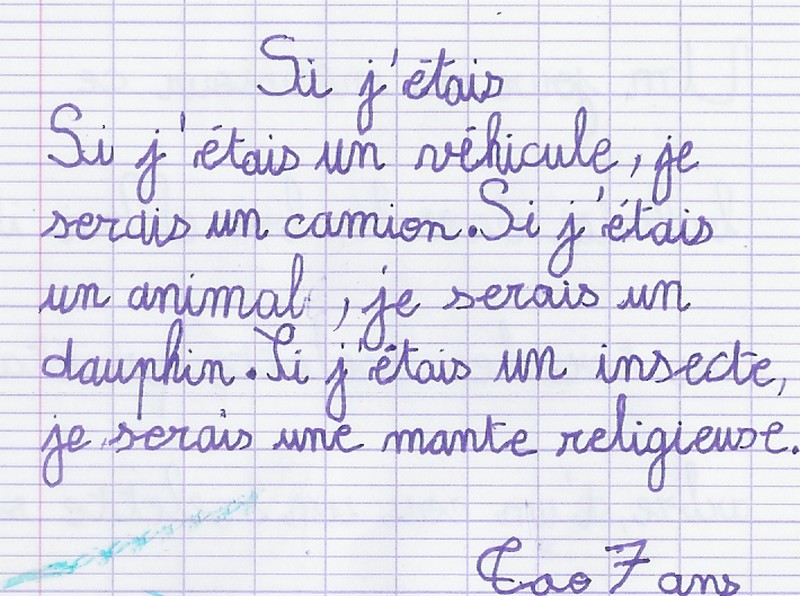 Si j'étais
Si j'étais un véhicule, je
serais un camion. Si j'étais
un animal, je serais un
dauphin. Si j'étais un insecte,
je serais une mante religieuse.
Tao 7 ans